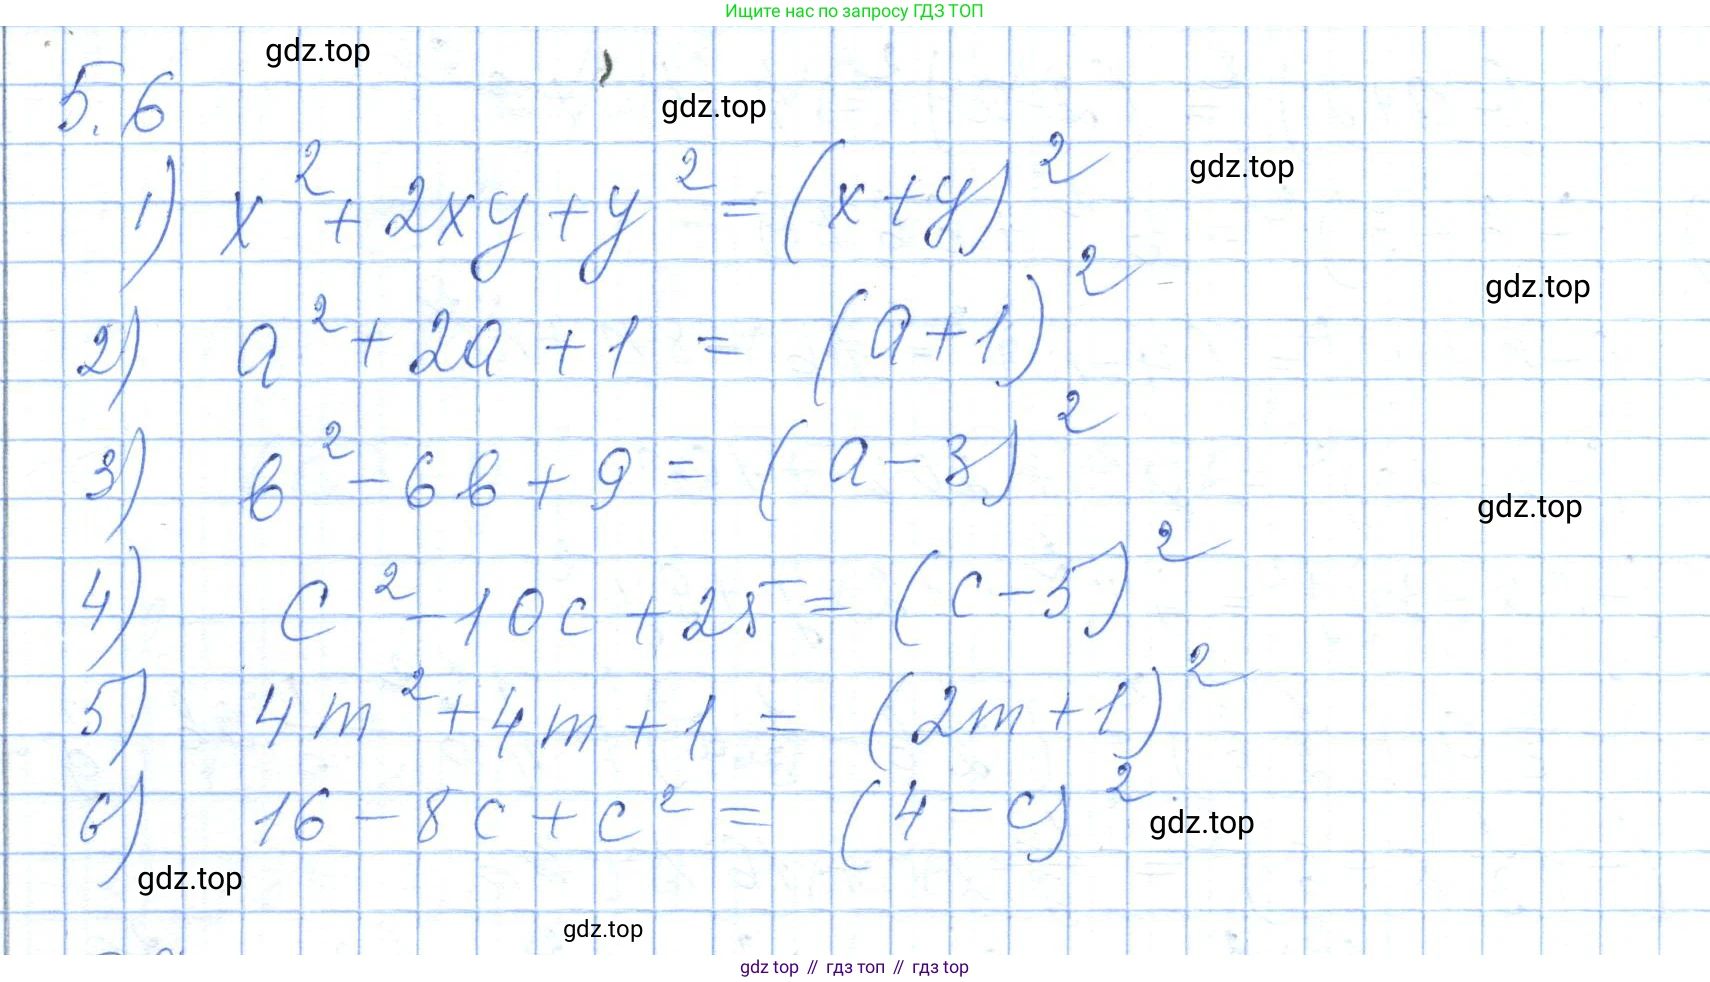 Ищите нас по запросу ГДЗ ТОП
gdz.top
5.6
gdz.top
1) x² + 2xy + y² = (x + y)²
gdz.top
2) a² + 2a + 1 = (a + 1)²
gdz.top
3) b² - 6b + 9 = (a - 3)²
gdz.top
4) c² - 10c + 25 = (c - 5)²
5) 4m² + 4m + 1 = (2m + 1)²
6) 16 - 8c + c² = (4 - c)²
gdz.top
gdz.top
gdz.top
gdz top // гдз топ // гдз top